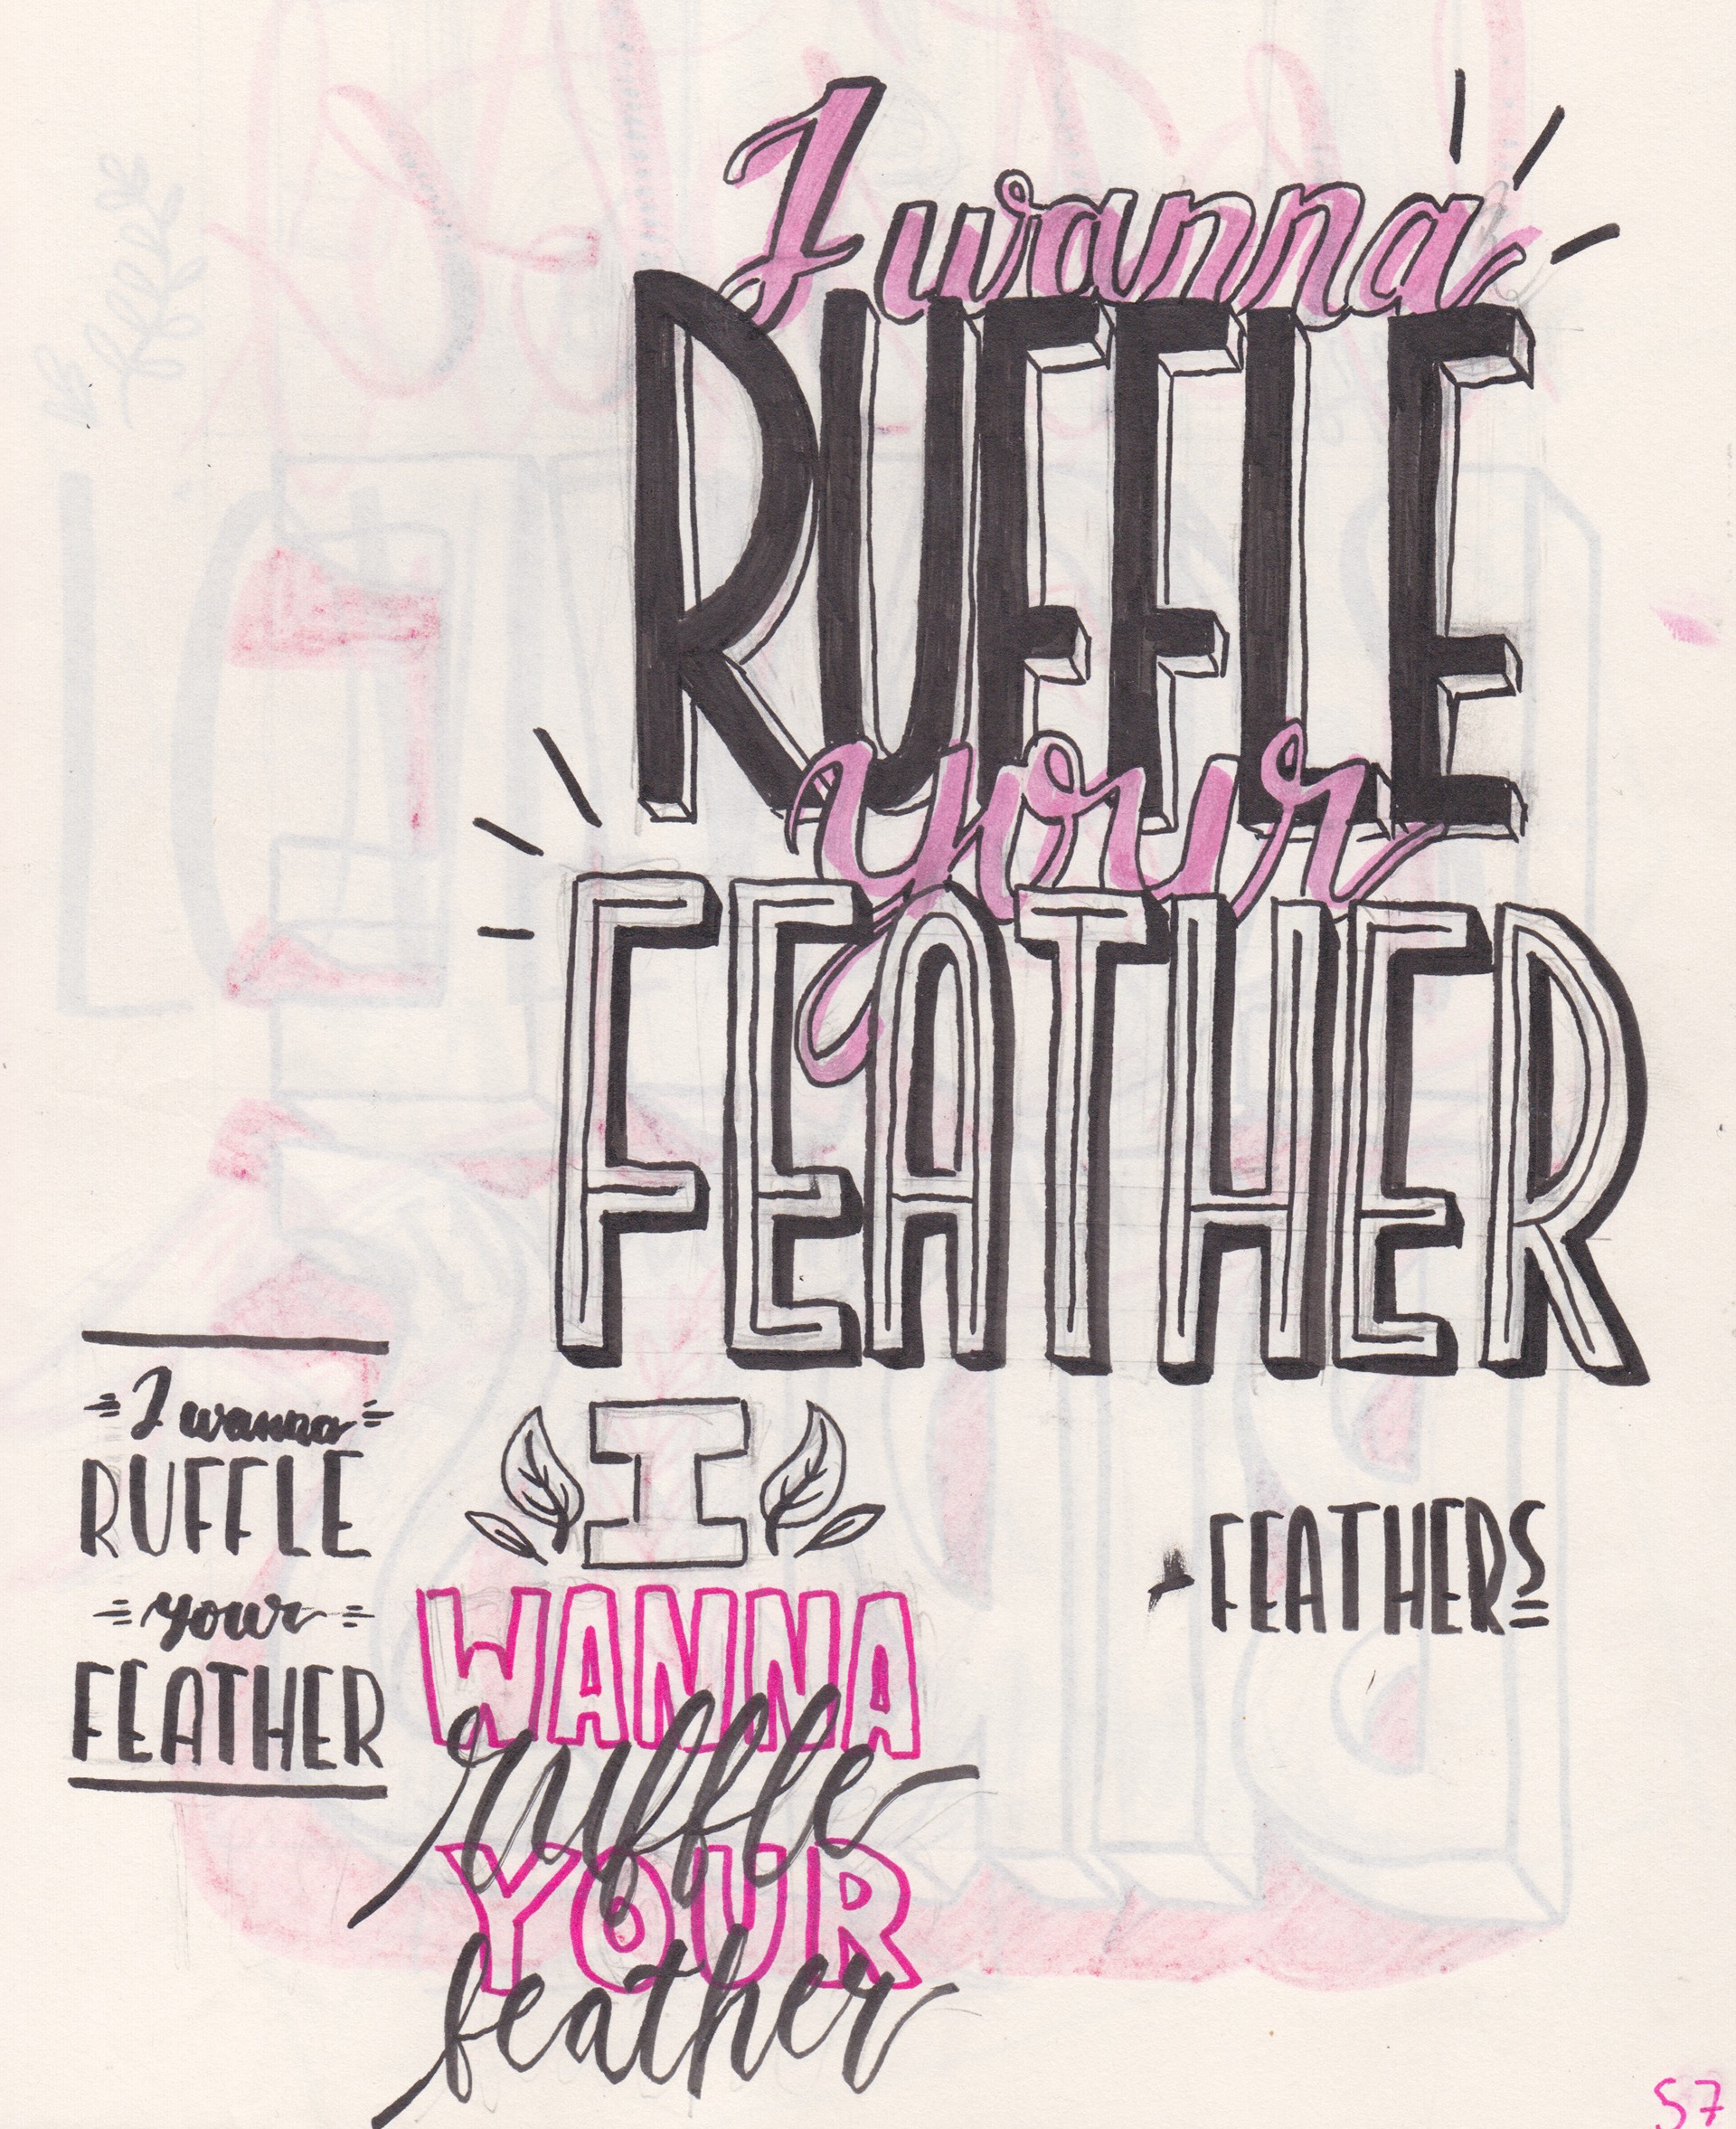 I wanna
RUFFLE
your
FEATHER
I wanna
RUFFLE
your
FEATHER
I
WANNA
ruffle
YOUR
feather
FEATHERS
57